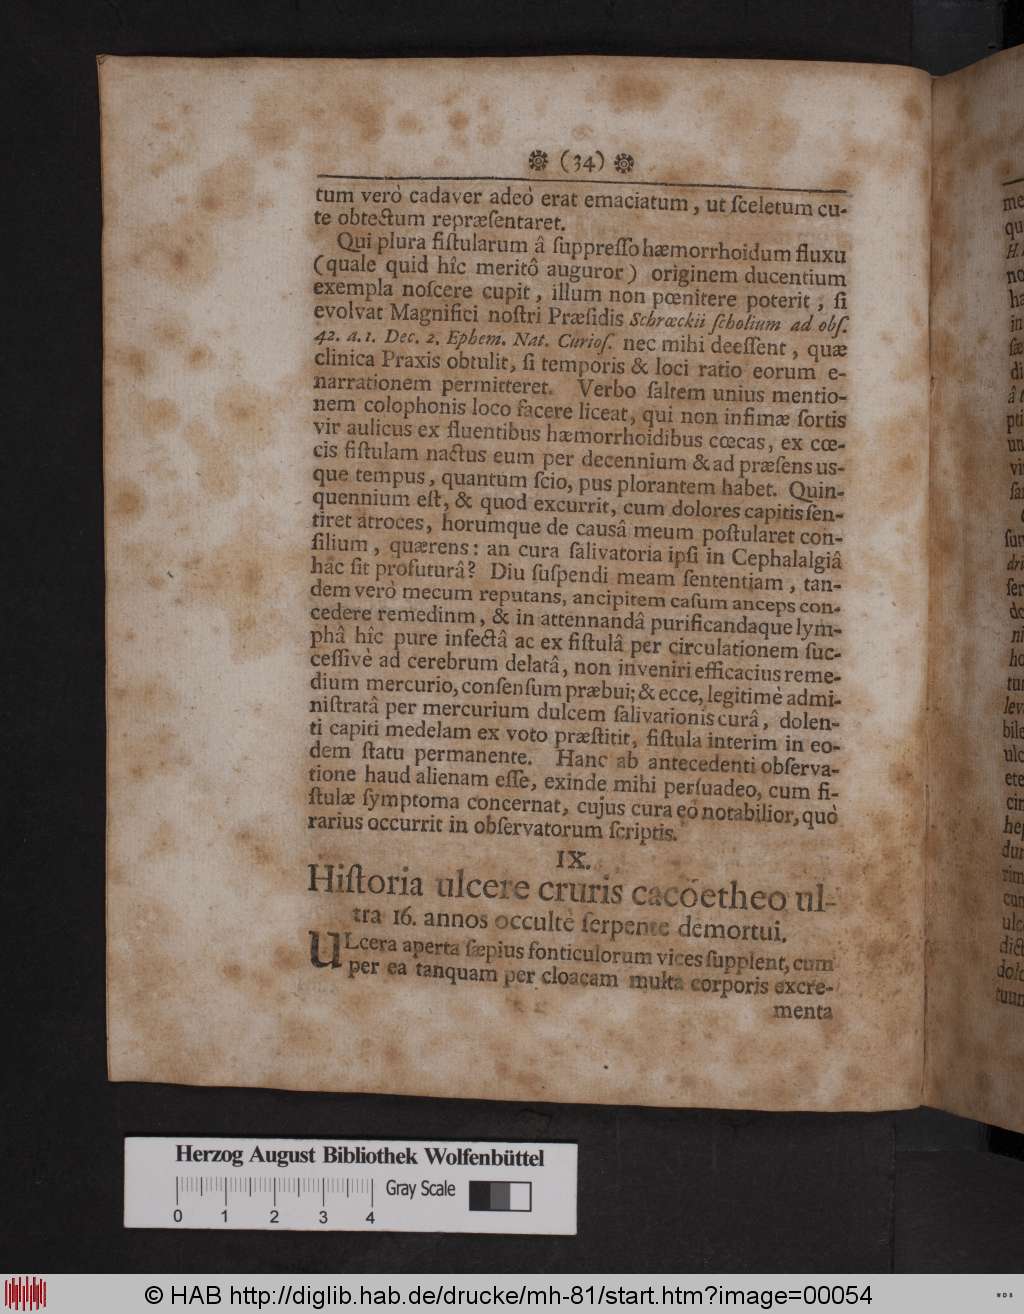 ❁ (34) ❁
tum verò cadaver adeò erat emaciatum, ut ſceletum cu-
te obtectum repræſentaret.
Qui plura fiſtularum â ſuppreſſo hæmorrhoidum fluxu
(quale quid hîc meritô auguror) originem ducentium
exempla noſcere cupit, illum non pœnitere poterit, ſi
evolvat Magnifici noſtri Præſidis Schrœckii ſcholium ad obſ.
42. a. 1. Dec. 2. Ephem. Nat. Curioſ. nec mihi deeſſent, quæ
clinica Praxis obtulit, ſi temporis & loci ratio eorum e-
narrationem permitteret. Verbo ſaltem unius mentio-
nem colophonis loco facere liceat, qui non infimæ ſortis
vir aulicus ex fluentibus hæmorrhoidibus cœcas, ex cœ-
cis fiſtulam nactus eum per decennium & ad præſens us-
que tempus, quantum ſcio, pus plorantem habet. Quin-
quennium eſt, & quod excurrit, cum dolores capitis ſen-
tiret atroces, horumque de causâ meum poſtularet con-
ſilium, quærens: an cura ſalivatoria ipſi in Cephalalgiâ
hâc ſit profuturâ? Diu ſuſpendi meam ſententiam, tan-
dem verò mecum reputans, ancipitem caſum anceps con-
cedere remedinm, & in attennandâ purificandaque lym-
phâ hîc pure infectâ ac ex fiſtulâ per circulationem ſuc-
ceſſivè ad cerebrum delatâ, non inveniri efficacius reme-
dium mercurio, conſenſum præbui; & ecce, legitimè admi-
niſtratâ per mercurium dulcem ſalivationis curâ, dolen-
ti capiti medelam ex voto præſtitit, fiſtula interim in eo-
dem ſtatu permanente. Hanc ab antecedenti obſerva-
tione haud alienam eſſe, exinde mihi perſuadeo, cum fi-
ſtulæ ſymptoma concernat, cujus cura eò notabilior, quò
rarius occurrit in obſervatorum ſcriptis.
IX.
Hiſtoria ulcere cruris cacoëtheo ul-
tra 16. annos occultè ſerpente demortui.
ULcera aperta ſæpius fonticulorum vices ſupplent, cum
per ea tanquam per cloacam multa corporis excre-
menta
Herzog August Bibliothek Wolfenbüttel
Gray Scale
0 1 2 3 4
© HAB http://diglib.hab.de/drucke/mh-81/start.htm?image=00054